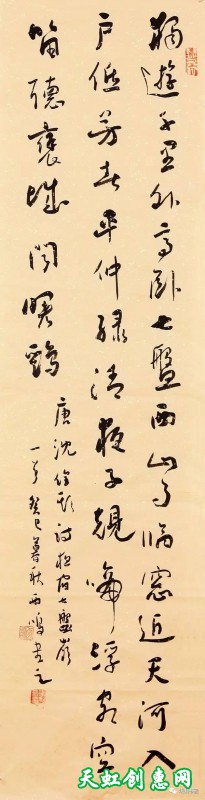 獨遊千里外高臥七盤西山月臨窓近天河入
戶低芳春平仲緑清夜子規啼浮客空
留聽褒城聞曙鷄
唐沈佺期詩夜宿七盤嶺
一首癸巳暮秋西鳴書之
天虹创意网